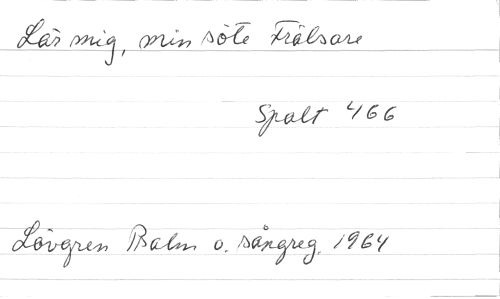 Lär mig, min söte Frälsare
Spalt 466
Lövgren Psalm o. sångreg. 1964